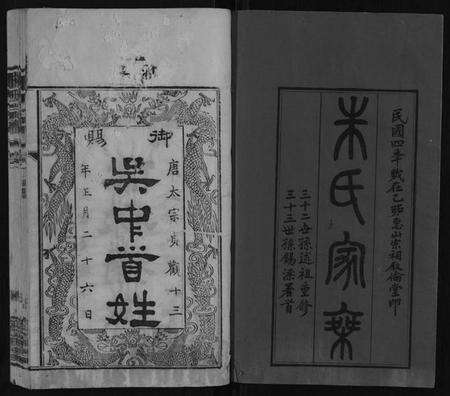 民國四年歲在乙卯惠山宗祠敘倫堂印
朱氏家乘
三十二世孫述祖重修
三十三世孫錫深署首
御賜
唐太宗貞觀十三
吳中首姓
年正月二十六日